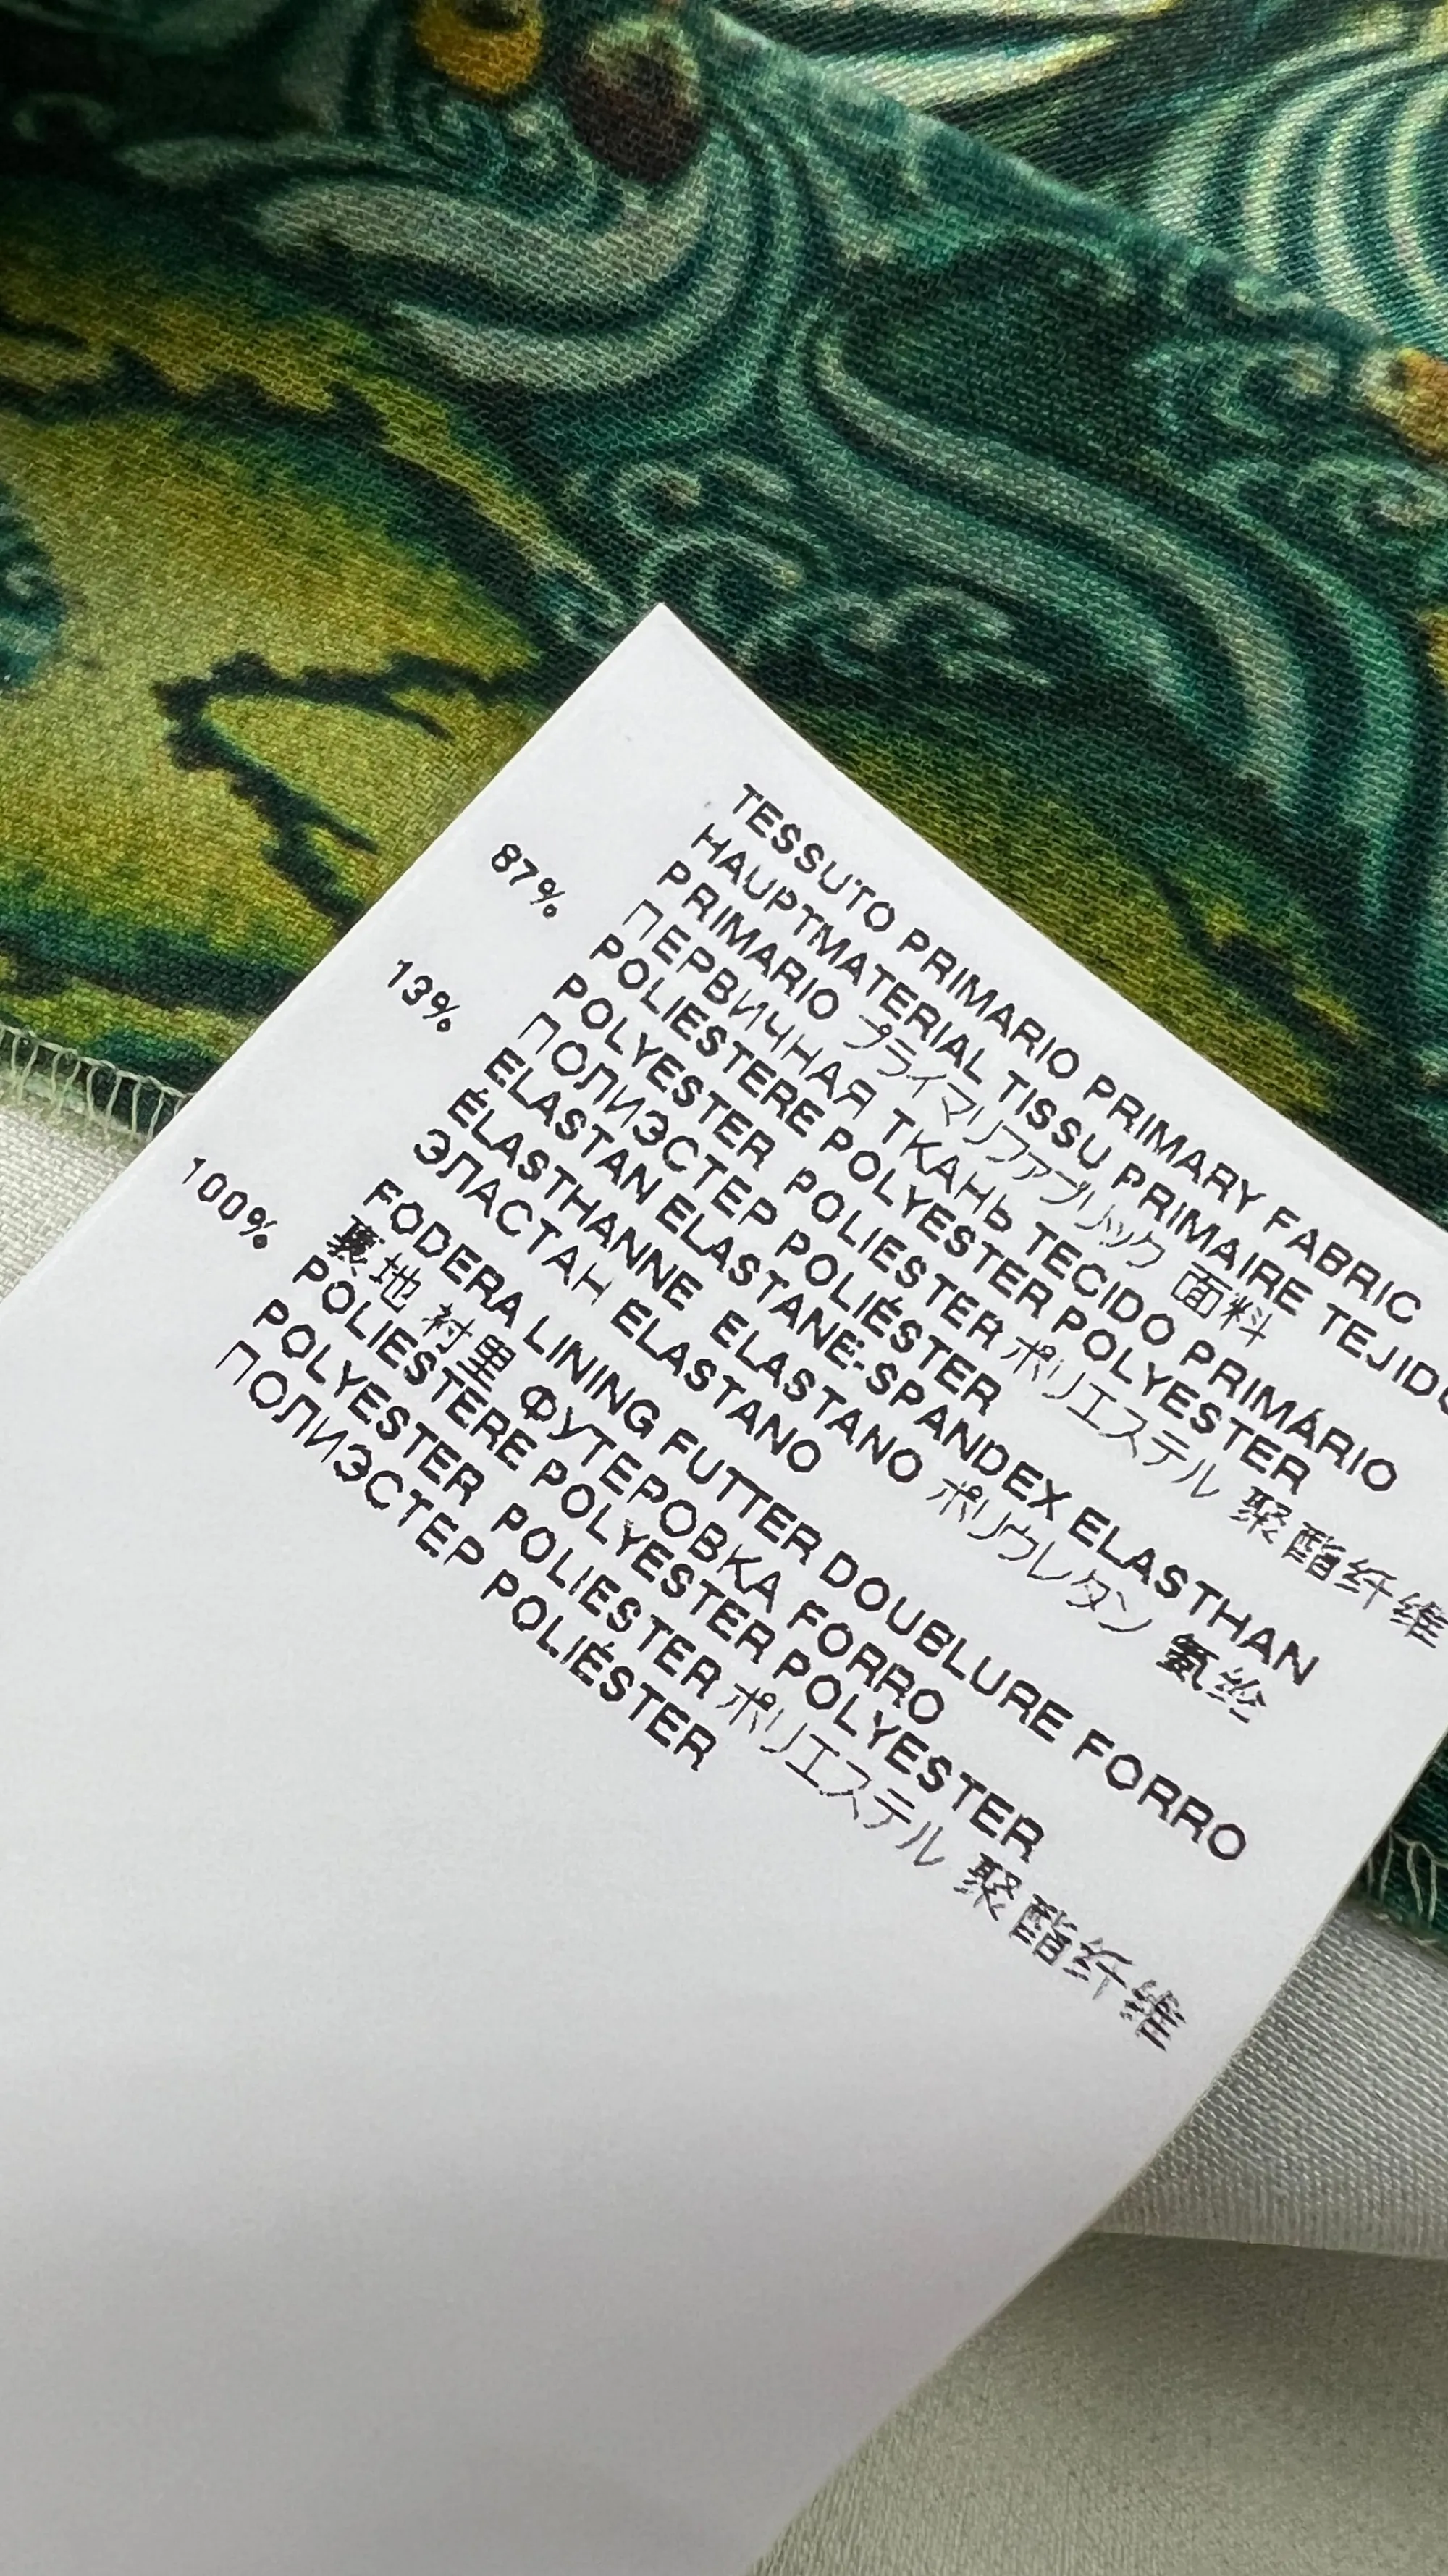 TESSUTO PRIMARIO PRIMARY FABRIC
HAUPTMATERIAL TISSU PRIMAIRE TEJIDO
PRIMARIO プライマリファブリック 面料
ПЕРВИЧНАЯ ТКАНЬ TECIDO PRIMÁRIO
87% POLIESTERE POLYESTER POLYESTER
POLYESTER POLIESTER ポリエステル 聚酯纤维
ПОЛИЭСТЕР POLIÉSTER
13% ELASTAN ELASTANE-SPANDEX ELASTHAN
ÉLASTHANNE ELASTANO ポリウレタン 氨纶
ЭЛАСТАН ELASTANO
FODERA LINING FUTTER DOUBLURE FORRO
裏地 衬里 ФУТЕРОВКА FORRO
100% POLIESTERE POLYESTER POLYESTER
POLYESTER POLIESTER ポリエステル 聚酯纤维
ПОЛИЭСТЕР POLIÉSTER